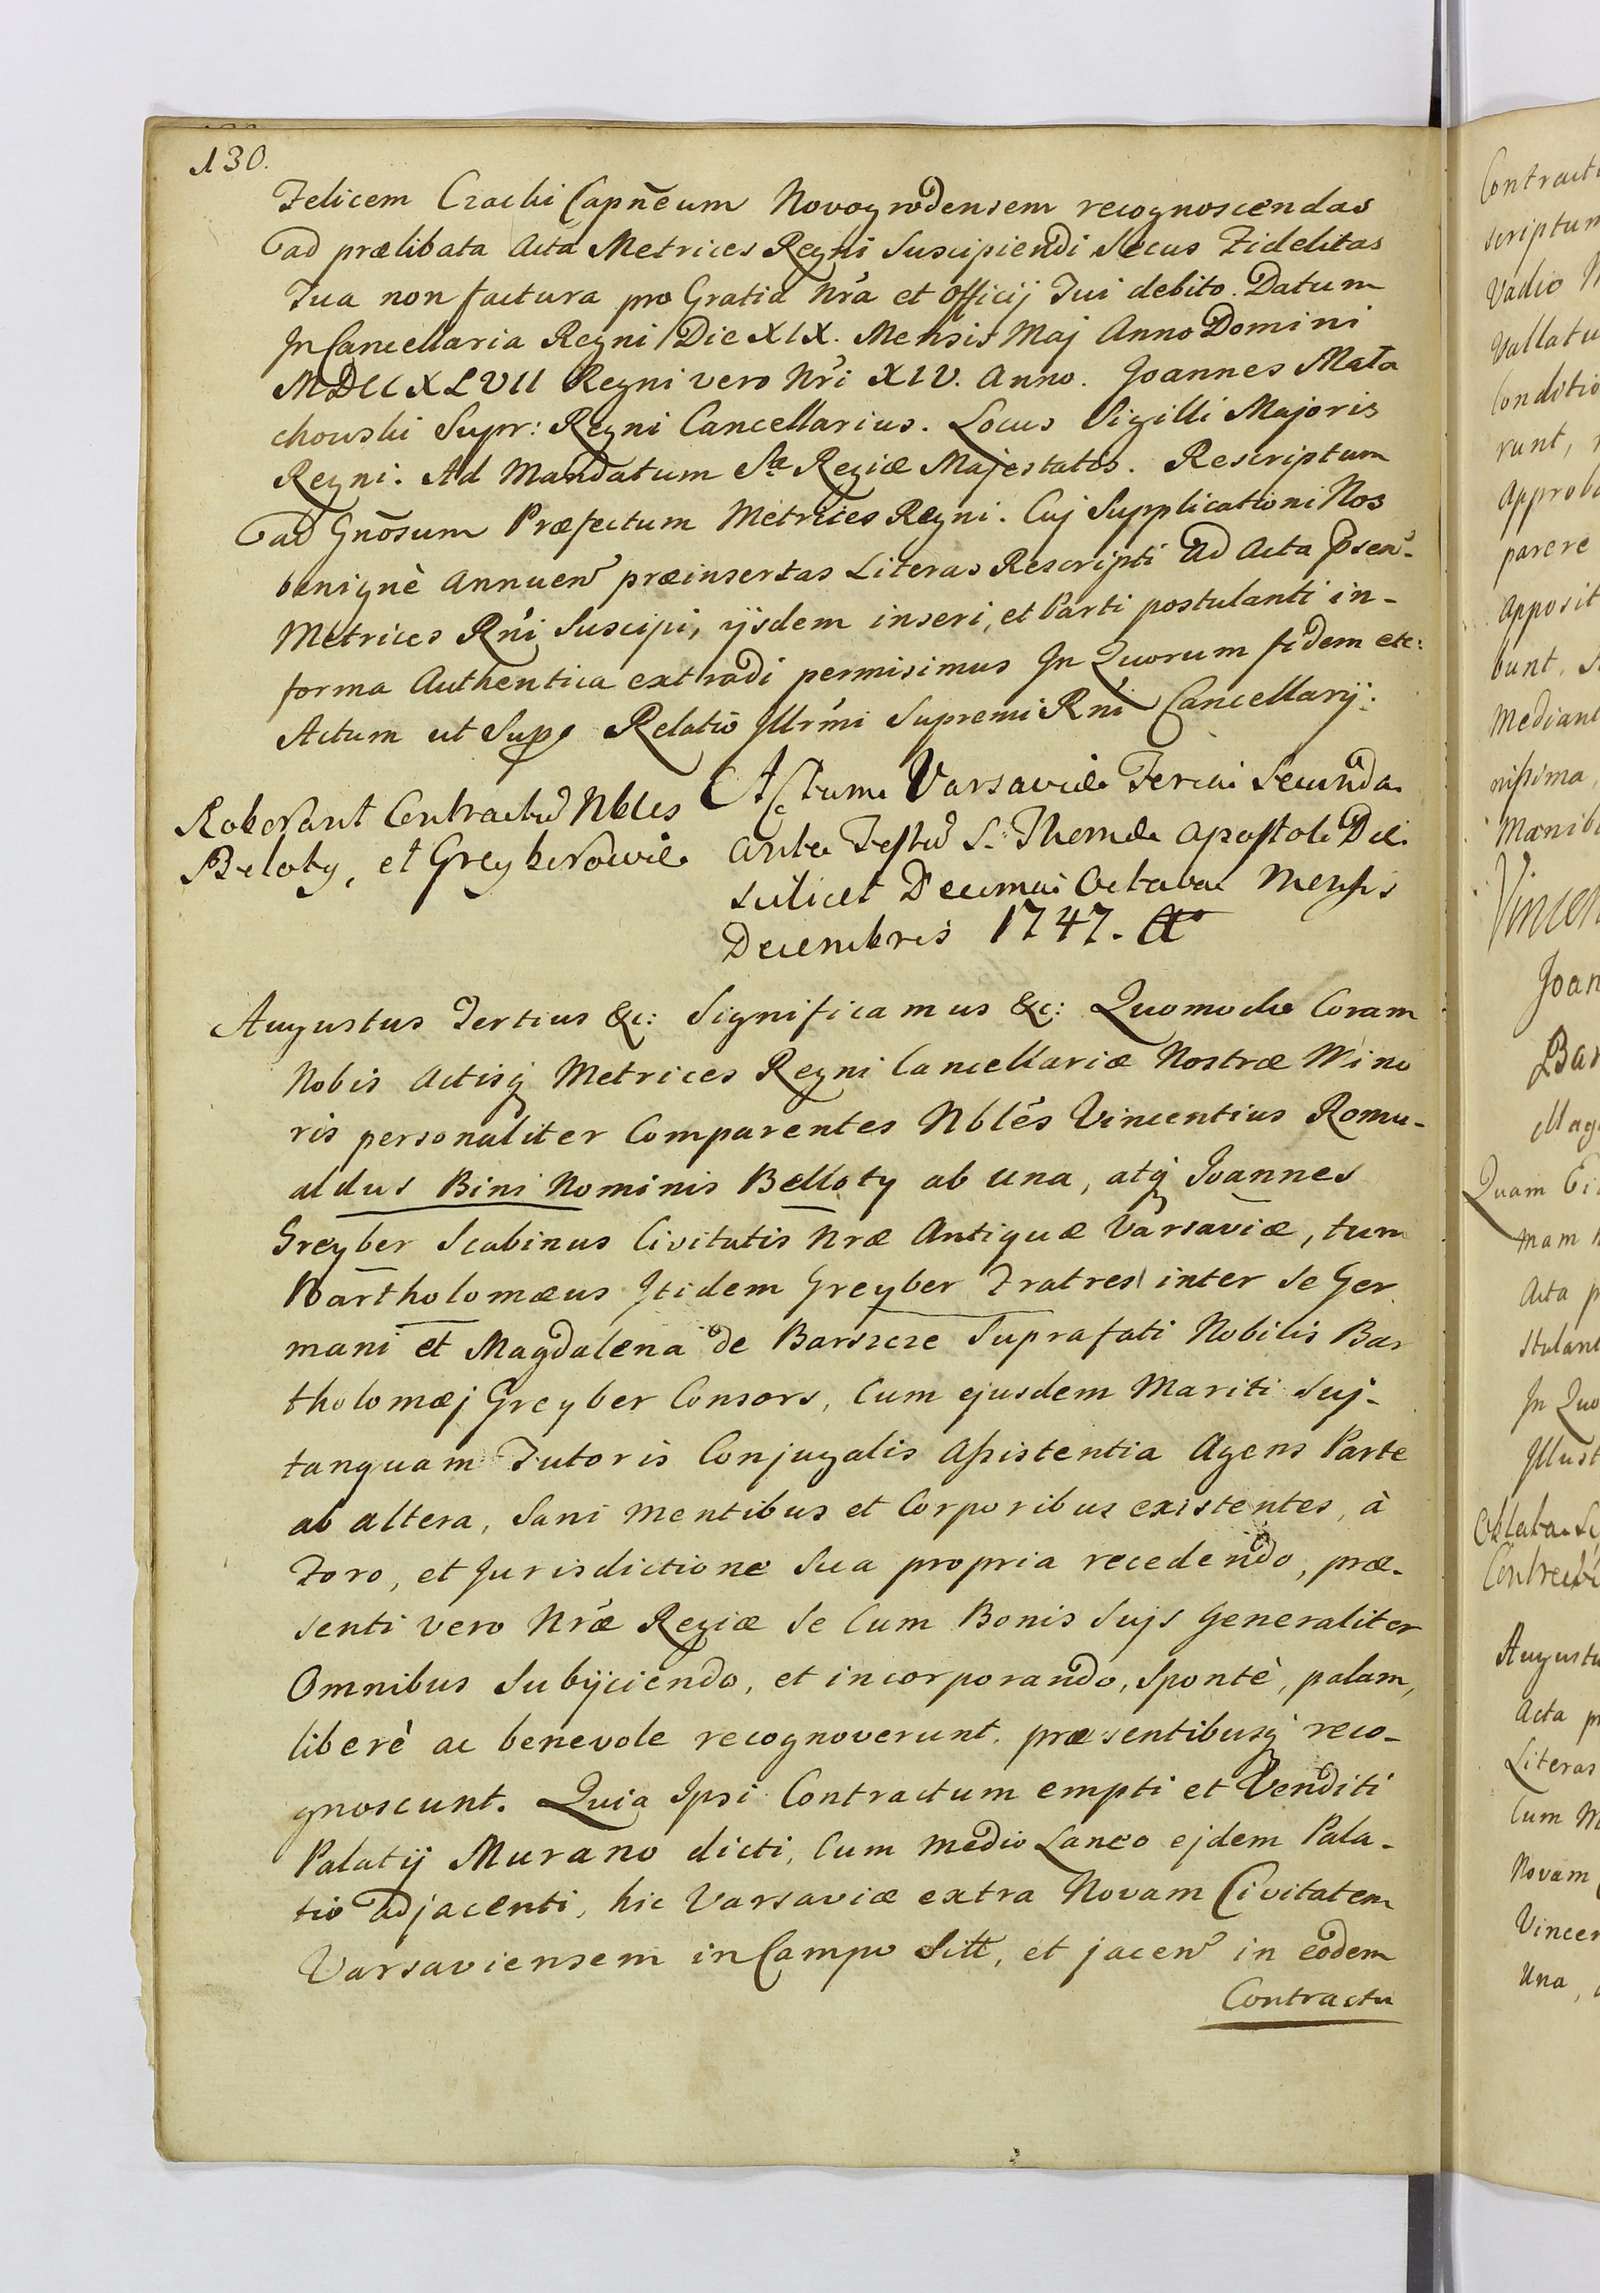 130.
Felicem Czacki Capñeum Novogrodensem recognoscendas
ad prælibata Acta Metrices Regni Suscipiendi Secus Fidelitas
Tua non factura pro Gratia Nr̃a et Officij Tui debito. Datum
In Cancellaria Regni Die XIX. Mensis Maj Anno Domini
MDCCXLVII Regni vero Nr̃i XIV. Anno. Joannes Mała
chowski Supr: Regni Cancellarius. Locus Sigilli Majoris
Regni. Ad Mandatum Sæ Regiæ Majestatis. Rescriptum
ad Gnõsum Præfectum Metrices Regni. Cuj Supplicationi Nos
benignè Annuen̛ præinsertas Literas Rescripti ad Acta p̃sen̛-
Metrices Rñi Suscipi, ijsdem inseri, et Parti postulanti in-
forma Authentica extradi permisimus In Quorum fidem etc:
Actum ut Supr Relatio Illr̃mi Supremi Rñi Cancellarij.
Roborant Contractũ Nbles
Beloty, et Greyberowie
Actum Varsaviæ Feria Secunda
ante Festũ S. Thomæ Apostoli Die
scilicet Decima Octava Mensis
Decembris 1747. Ao
Augustus Tertius &c: Significamus &c: Quomodo Coram
Nobis Actisq́ Metrices Regni Cancellariæ Nostræ Mino
ris personaliter Comparentes Nblẽs Vincentius Romu-
aldus Bini Nominis Belloty ab una, atq́ Joannes
Greyber Scabinus Civitatis Nræ Antiquæ Varsaviæ, tum
Bartholomæus Itidem Greyber Fratres inter se Ger
mani et Magdalena de Barszcze Suprafati Nobilis Bar
tholomæj Greyber Consors, Cum ejusdem Mariti Suj-
tanquam Tutoris Conjugalis Assistentia Agens Parte
ab altera, Sani mentibus et Corporibus existentes, à
Foro, et Jurisdictione Sua propria recedendo, præ-
senti vero Nr̃æ Regiæ Se Cum Bonis Sujs Generaliter
Omnibus Subijciendo, et incorporando, Spontè, palam,
liberè ac benevole recognoverunt, præsentibusq́ reco-
gnoscunt. Quia Ipsi Contractum empti et Venditi
Palatij Murano dicti, Cum medio Laneo ejdem Pala-
tio adjacenti, hic Varsaviæ extra Novam Civitatem
Varsaviensem in Campo Sitt, et jacen̛ in eodem
Contractu
Contract
scriptum
Vadio
Vallatu
Conditio
runt,
Approba
parere
Apposit
bunt.
Mediant
nissima,
Manib
Vincen
Joan
Bar
Mag
Quam
mam
Acta p
stulant
In Quo
Illust
Oblata
Augustu
Acta p
Literas
Cum
Novam
Vincen
Una,